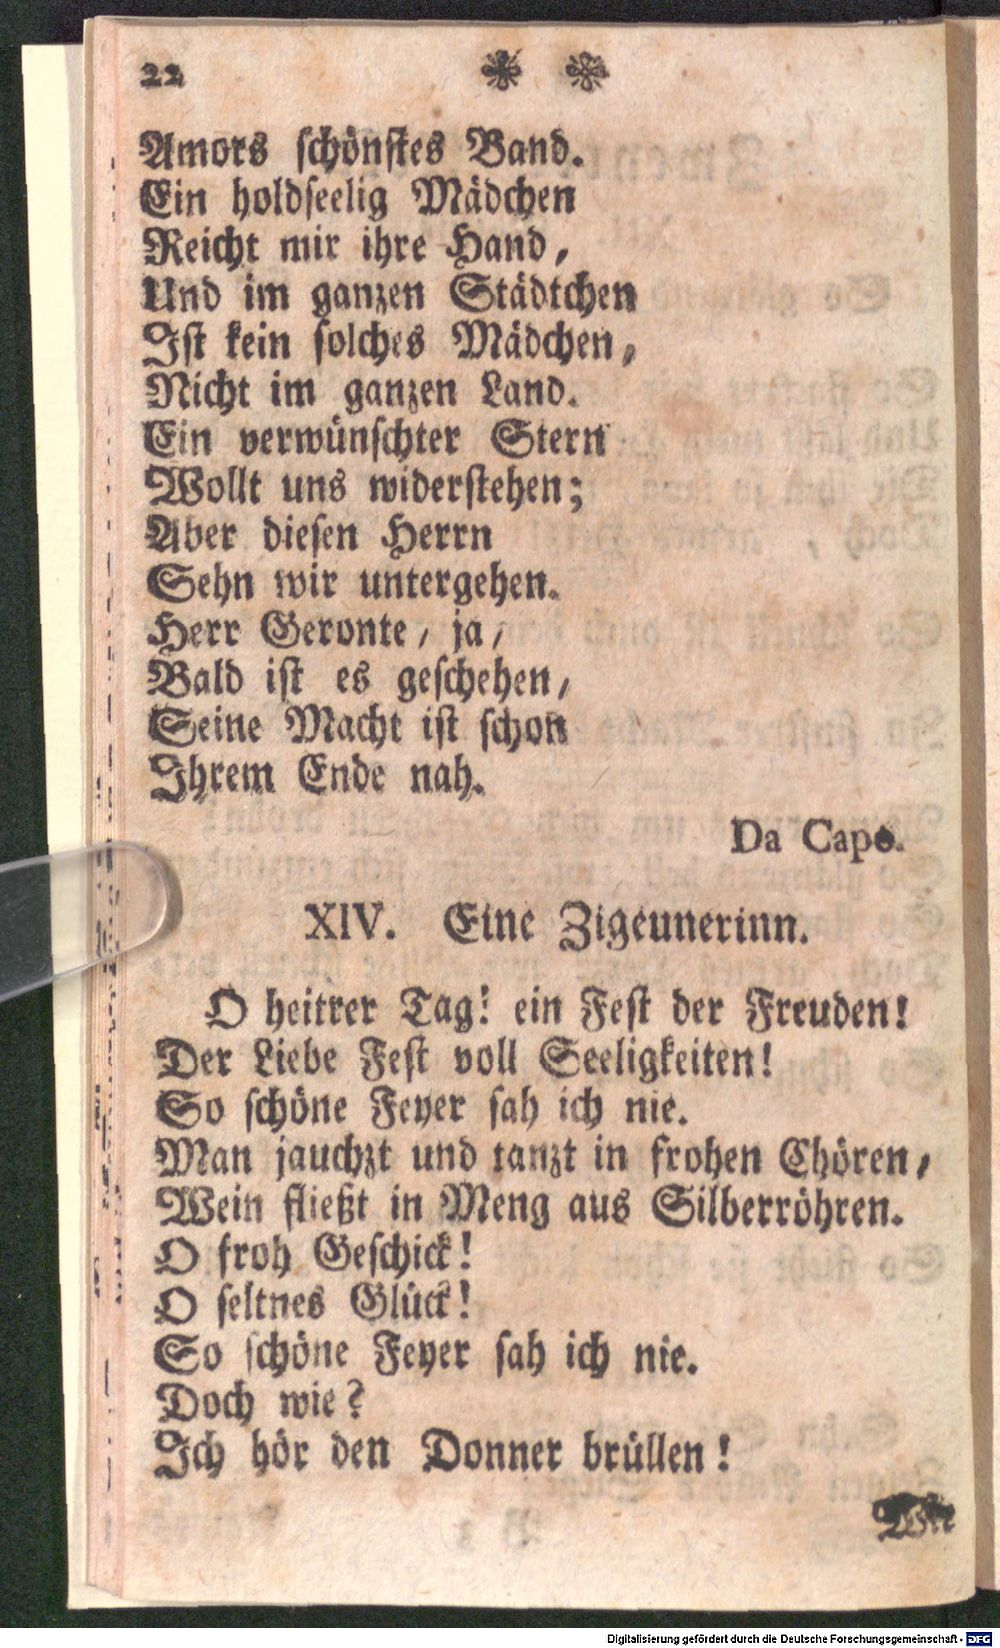 22
Amors schönstes Band.
Ein holdseelig Mädchen
Reicht mir ihre Hand,
Und im ganzen Städtchen
Ist kein solches Mädchen,
Nicht im ganzen Land.
Ein verwünschter Stern
Wollt uns widerstehen;
Aber diesen Herrn
Sehn wir untergehen.
Herr Geronte, ja,
Bald ist es geschehen,
Seine Macht ist schon
Ihrem Ende nah.
Da Capo.
XIV. Eine Zigeunerinn.
O heitrer Tag! ein Fest der Freuden!
Der Liebe Fest voll Seeligkeiten!
So schöne Feyer sah ich nie.
Man jauchzt und tanzt in frohen Chören,
Wein fließt in Meng aus Silberröhren.
O froh Geschick!
O seltnes Glück!
So schöne Feyer sah ich nie.
Doch wie?
Ich hör den Donner brüllen!
Digitalisierung gefördert durch die Deutsche Forschungsgemeinschaft - DFG